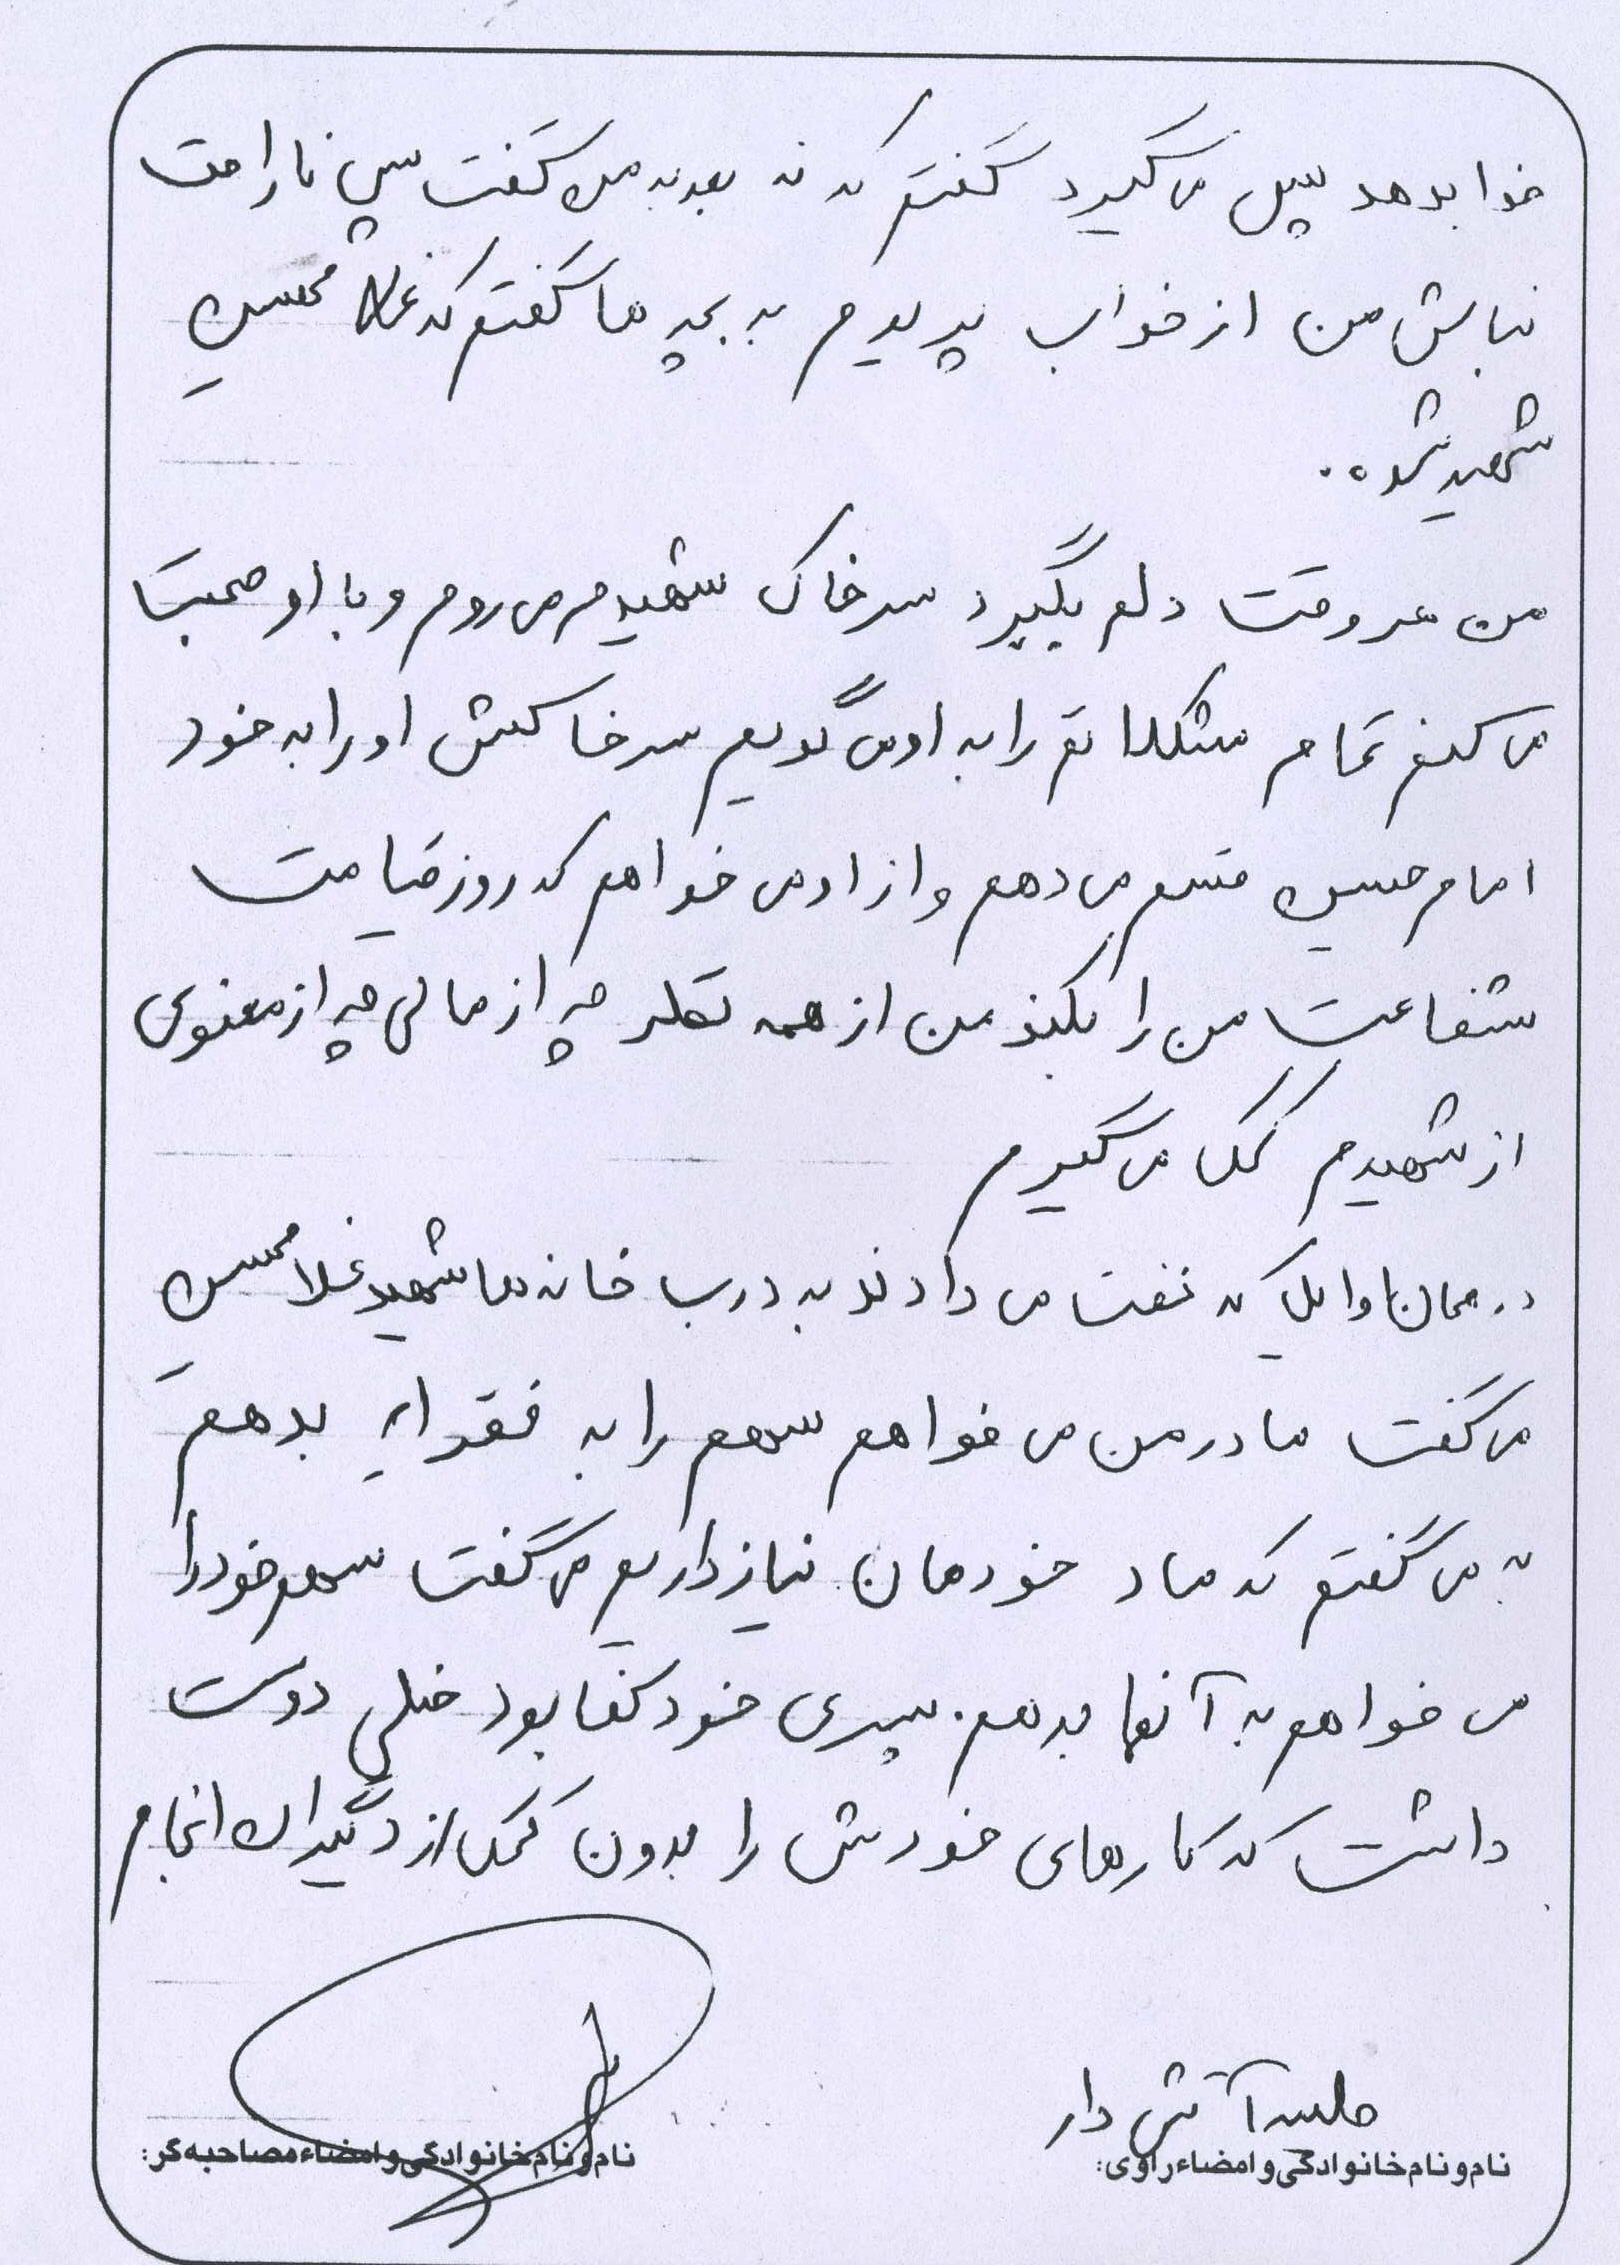 خدا بدهد پس می گیرد گفتم که نه بعد به من گفت پس ناراحت
نباش من از خواب پریدم به بچه ها گفتم که غلامحسین
شهید شده.
من هر وقت دلم بگیرد سر خاک شهیدم می روم و با او صحبت
می کنم تمام مشکلاتم را به او می گویم سر خاکش او را به خود
امام حسین قسم می دهم و از او می خواهم که روز قیامت
شفاعت من را بکند من از همه نظر چه از مالی چه از معنوی
از شهیدم کمک می گیرم
در همان اوایل که نفت می دادند به درب خانه ها شهید غلامحسین
می گفت مادر من می خواهم سهمم را به فقرا بدهم
می گفتم که ما خودمان نیاز داریم می گفت سهم خود را
می خواهم به آنها بدهم. پسری خودکفا بود خیلی دوست
داشت که کارهای خودش را بدون کمک از دیگران انجام
آتش دار
نام و نام خانوادگی و امضاء راوی:
نام و نام خانوادگی و امضاء مصاحبه گر: